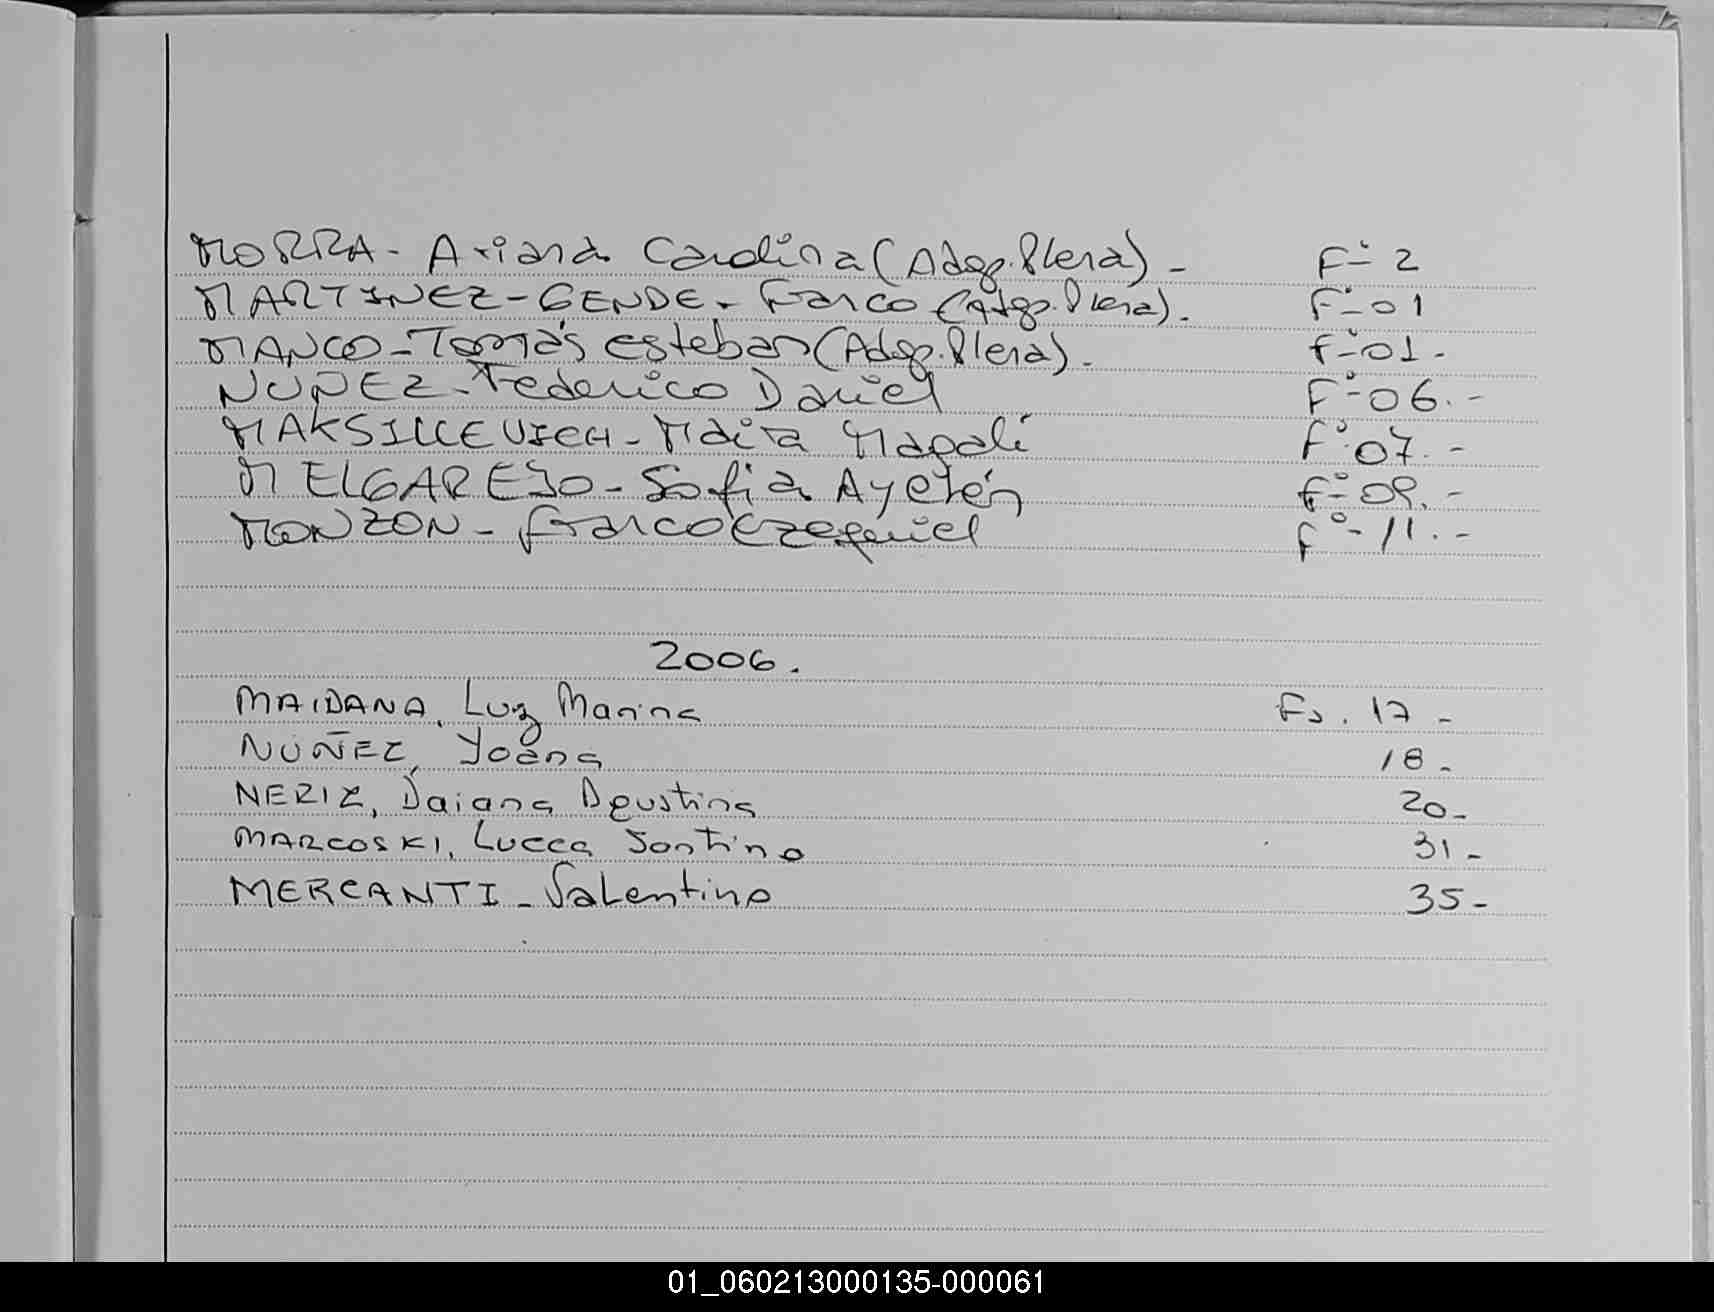 MORRA - Ariana Carolina (Adop. Plena) - F° 2
MARTINEZ - GENDE - Franco (Adop. Plena). - F° - 01
MANCO - Tomás esteban (Adop. Plena). - f° - 01 -
NUÑEZ - Federico Daniel F° - 06. -
MAKSILLEVICH - Maira Magalí F° 07. -
MELGAREJO - Sofia Ayelén f° - 09. -
MONZON - franco Ezequiel f° - 11. -
2006.
MAIDANA, Luz Marina Fs. 17 -
NUÑEZ, Yoana 18 -
NERIZ, Daiana Agustina 20 -
MARCOSKI, Lucca Santino 31 -
MERCANTI - Valentino 35 -
01_060213000135-000061